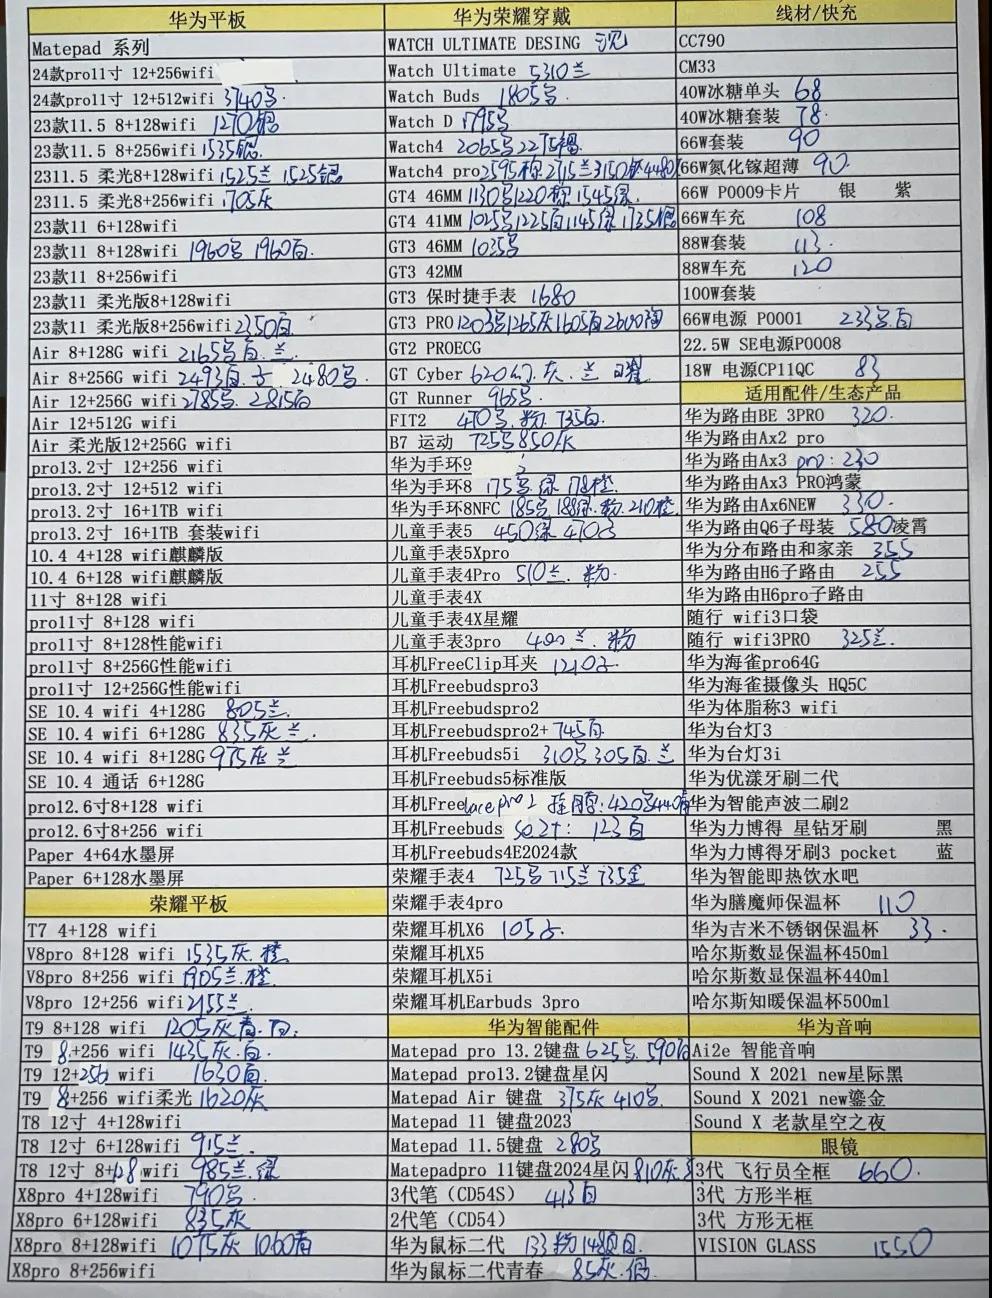 华为平板
Matepad 系列
24款pro11寸 12+256wifi
24款pro11寸 12+512wifi 3740
23款11.5 8+128wifi 1270银
23款11.5 8+256wifi 1535银
2311.5 柔光8+128wifi 1525兰 1525银
2311.5 柔光8+256wifi 1705灰
23款11 6+128wifi
23款11 8+128wifi 1960 1960白
23款11 8+256wifi
23款11 柔光版8+128wifi
23款11 柔光版8+256wifi 2350白
Air 8+128G wifi 2165 白.兰
Air 8+256G wifi 2493白 2480
Air 12+256G wifi 2785 2815白
Air 12+512G wifi
Air 柔光版12+256G wifi
pro13.2寸 12+256 wifi
pro13.2寸 12+512 wifi
pro13.2寸 16+1TB wifi
pro13.2寸 16+1TB 套装wifi
10.4 4+128 wifi麒麟版
10.4 6+128 wifi麒麟版
11寸 8+128 wifi
pro11寸 8+128 wifi
pro11寸 8+128性能wifi
pro11寸 8+256G性能wifi
pro11寸 12+256G性能wifi
SE 10.4 wifi 4+128G 805兰.
SE 10.4 wifi 6+128G 835灰 兰.
SE 10.4 wifi 8+128G 975灰 兰
SE 10.4 通话 6+128G
pro12.6寸8+128 wifi
pro12.6寸8+256 wifi
Paper 4+64水墨屏
Paper 6+128水墨屏
荣耀平板
T7 4+128 wifi
V8pro 8+128 wifi 1535灰.橙
V8pro 8+256 wifi 1905兰.橙
V8pro 12+256 wifi 2155兰.
T9 8+128 wifi 1205灰.青.白.
T9 8+256 wifi 1435灰.白.
T9 12+256 wifi 1630白.
T9 8+256 wifi柔光 1620灰
T8 12寸 4+128wifi
T8 12寸 6+128wifi 915兰.
T8 12寸 8+128wifi 985兰.绿
X8pro 4+128wifi 790
X8pro 6+128wifi 835灰
X8pro 8+128wifi 1075灰 1060青
X8pro 8+256wifi
华为荣耀穿戴
WATCH ULTIMATE DESING 沉
Watch Ultimate 5310兰
Watch Buds 1805
Watch D 1795
Watch4 2065 2275银
Watch4 pro 2595棕 2715兰 3150钛 4480
GT4 46MM 1130 1220棕 1545绿.
GT4 41MM 1025 1225白 1145绿 1735银
GT3 46MM 1035
GT3 42MM
GT3 保时捷手表 1680
GT3 PRO 1203 1265灰 1605白 2600陶
GT2 PROECG
GT Cyber 620幻.灰.兰 曜
GT Runner 965
FIT2 470 粉 735白.
B7 运动 725 850灰
华为手环9
华为手环8 175 绿 178橙.
华为手环8NFC 185 188绿.粉.210橙.
儿童手表5 450绿 470
儿童手表5Xpro
儿童手表4Pro 510兰.粉.
儿童手表4X
儿童手表4X星耀
儿童手表3pro 400 兰.粉
耳机FreeClip耳夹 1210
耳机Freebudspro3
耳机Freebudspro2
耳机Freebudspro2+ 745白
耳机Freebuds5i 310 305白.兰
耳机Freebuds5标准版
耳机Freelace pro 2 挂脖: 420 440青
耳机Freebuds se 2+: 123白
耳机Freebuds4E2024款
荣耀手表4 725 715兰 735金
荣耀手表4pro
荣耀耳机X6 105
荣耀耳机X5
荣耀耳机X5i
荣耀耳机Earbuds 3pro
华为智能配件
Matepad pro 13.2键盘 625 590白
Matepad pro13.2键盘星闪
Matepad Air 键盘 375灰 410
Matepad 11 键盘2023
Matepad 11.5键盘 280
Matepadpro 11键盘2024星闪 810灰
3代笔（CD54S） 413白
2代笔（CD54）
华为鼠标二代 133粉 148 白.
华为鼠标二代青春 85灰.
线材/快充
CC790
CM33
40W冰糖单头 68
40W冰糖套装 78.
66W套装 90
66W氮化镓超薄 90.
66W P0009卡片 银 紫
66W车充 108
88W套装 113.
88W车充 120
100W套装
66W电源 P0001 233 白
22.5W SE电源P0008
18W 电源CP11QC 83
适用配件/生态产品
华为路由BE 3PRO 320.
华为路由Ax2 pro
华为路由Ax3 pro: 230
华为路由Ax3 PRO鸿蒙
华为路由Ax6NEW 330.
华为路由Q6子母装 580凌霄
华为分布路由和家亲 355
华为路由H6子路由 255
华为路由H6pro子路由
随行 wifi3口袋
随行 wifi3PRO 325兰.
华为海雀pro64G
华为海雀摄像头 HQ5C
华为体脂称3 wifi
华为台灯3
华为台灯3i
华为优漾牙刷二代
华为智能声波二刷2
华为力博得 星钻牙刷 黑
华为力博得牙刷3 pocket 蓝
华为智能即热饮水吧
华为膳魔师保温杯 110
华为吉米不锈钢保温杯 33.
哈尔斯数显保温杯450ml
哈尔斯数显保温杯440ml
哈尔斯知暖保温杯500ml
华为音响
Ai2e 智能音响
Sound X 2021 new星际黑
Sound X 2021 new鎏金
Sound X 老款星空之夜
眼镜
3代 飞行员全框 660.
3代 方形半框
3代 方形无框
VISION GLASS 1550